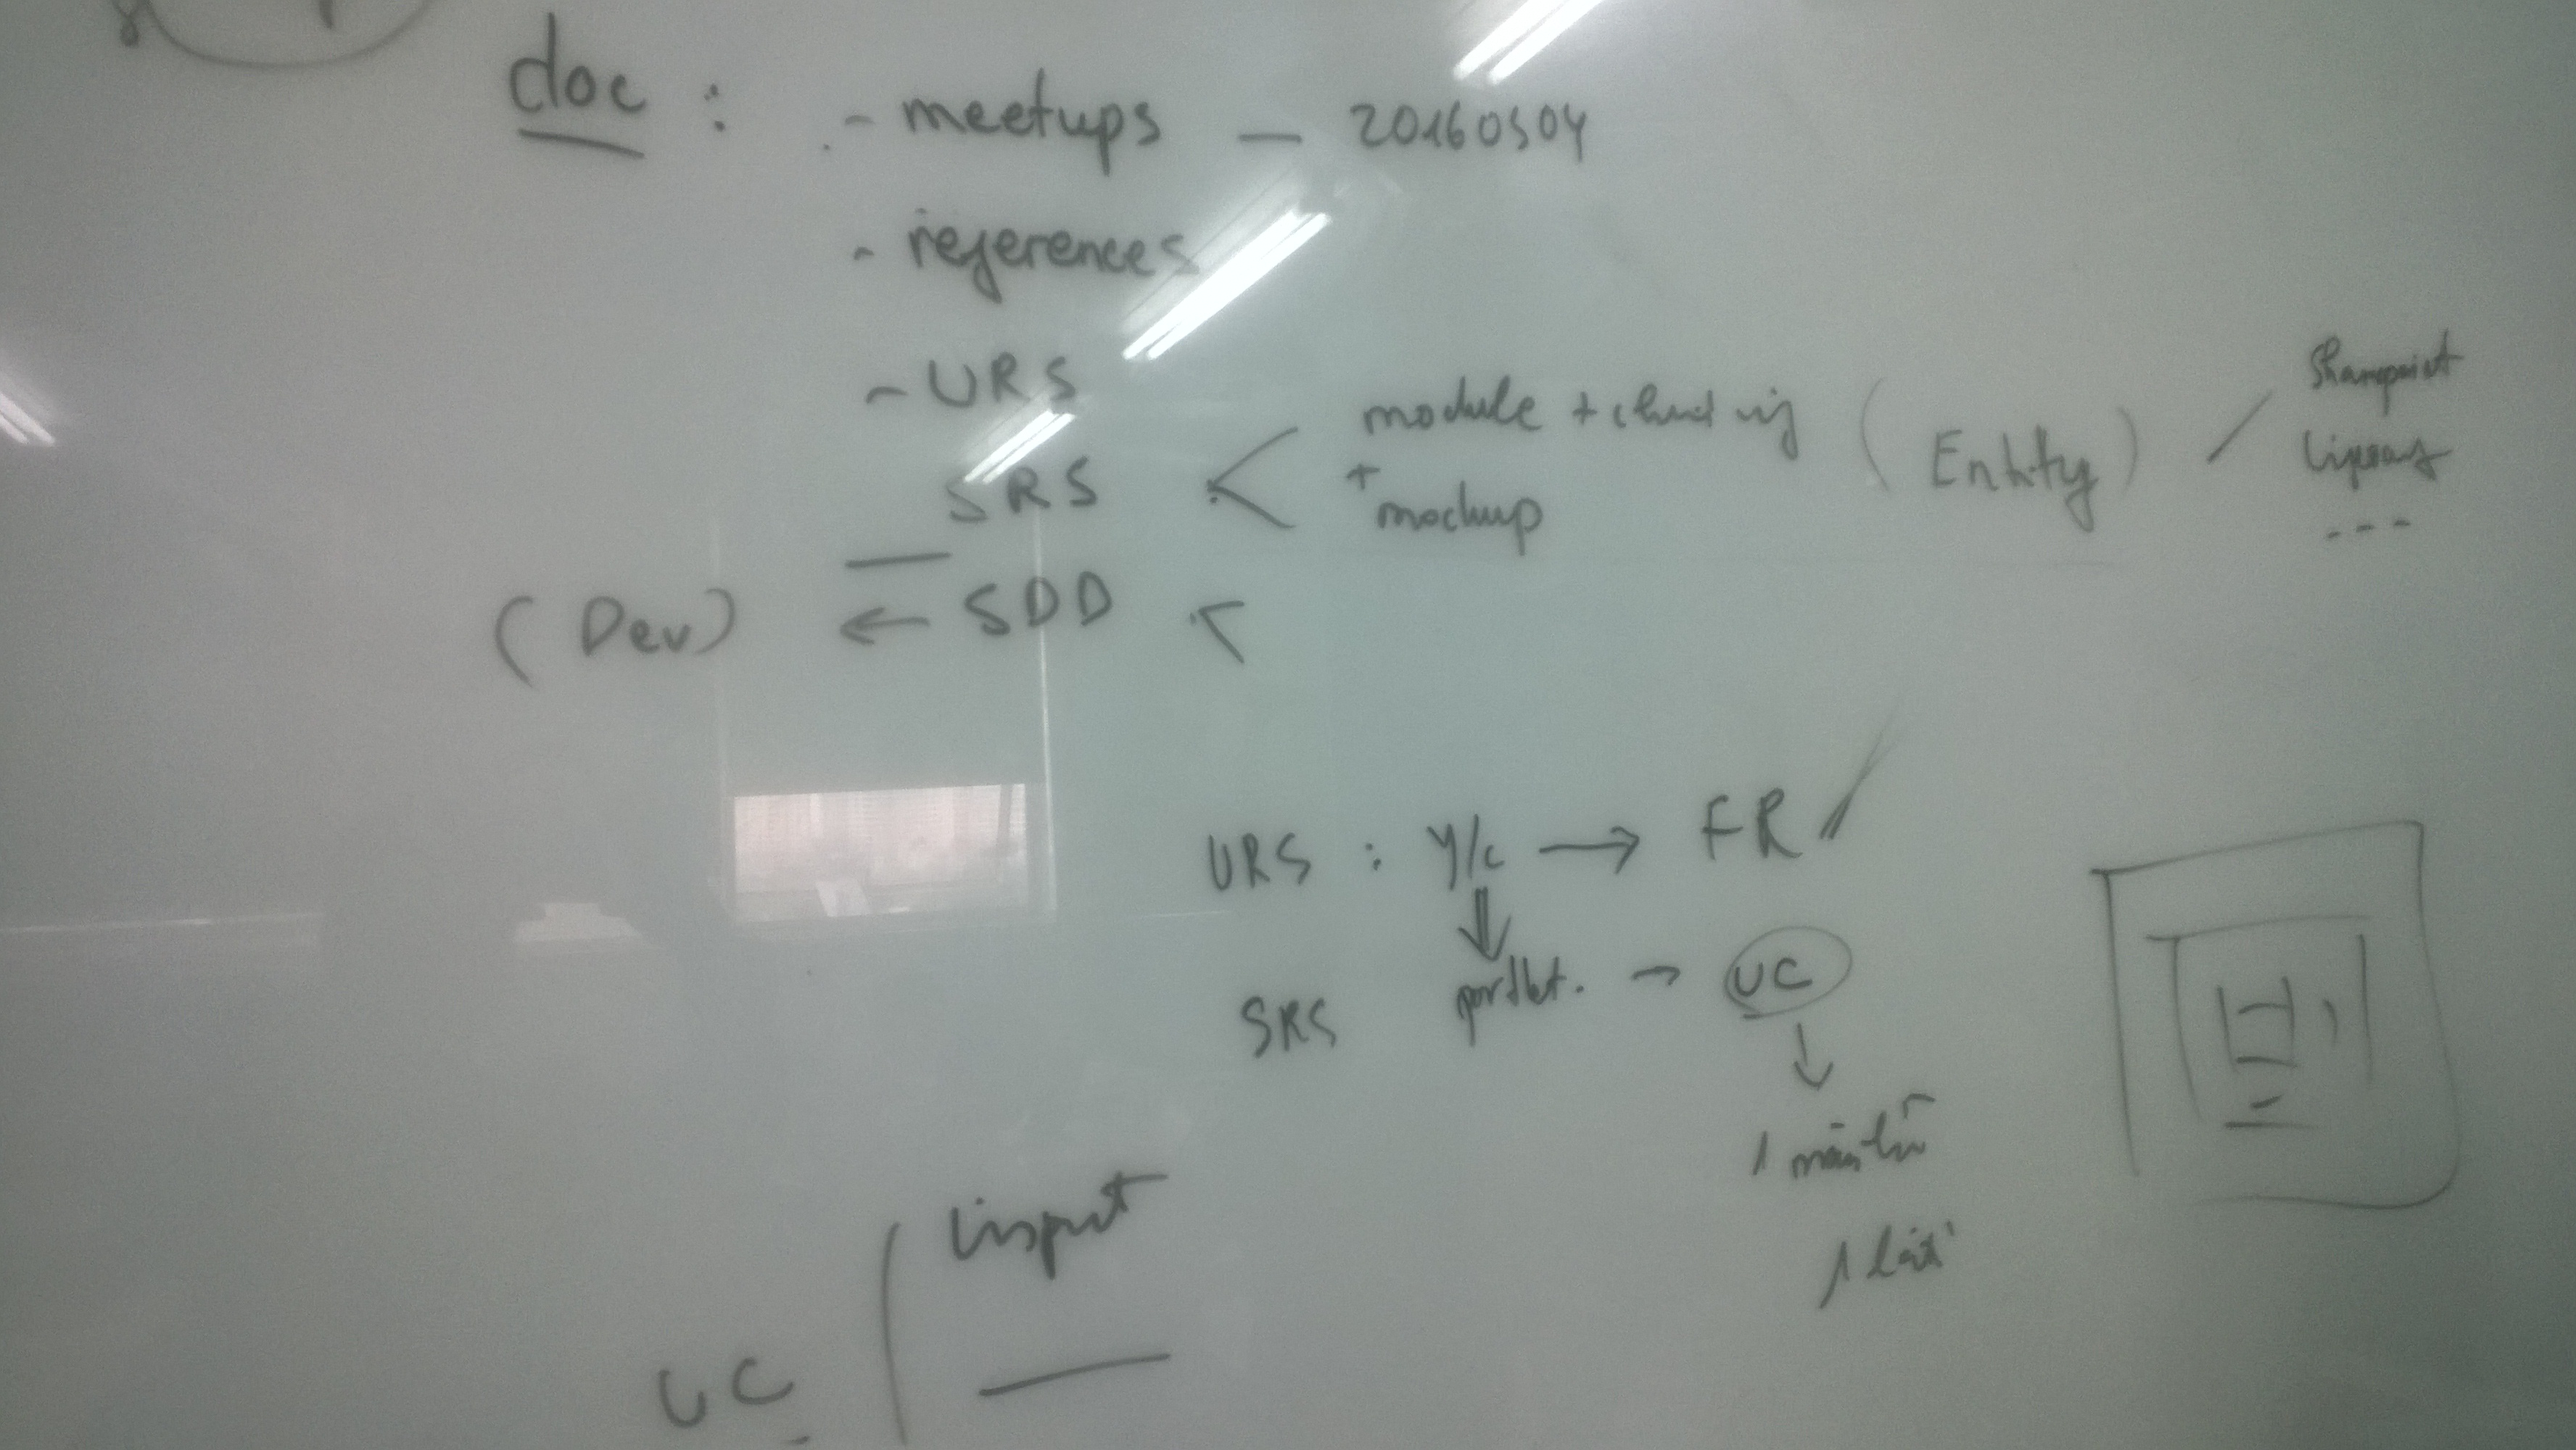 doc : - meetups — 20160304
- references
- URS
SRS < module + chức năng ( Entity ) / Sharepoint
+ mockup
Liferay
---
(Dev) ← SDD <
URS : y/c → FR /
SRS portlet. → UC
1 màn hình
1 
input
UC